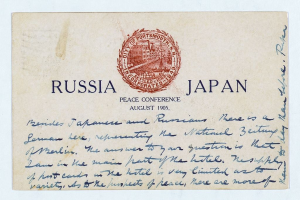 RUSSIA JAPAN
PEACE CONFERENCE
AUGUST 1905.
Besides Japanese and Russians there is a
German here representing the National Zeitung
of Berlin. The answer to your question is that
I am in the main part of the hotel. The supply
of post cards in the hotel is very limited as to
variety. As to the prospects of peace, there are more of